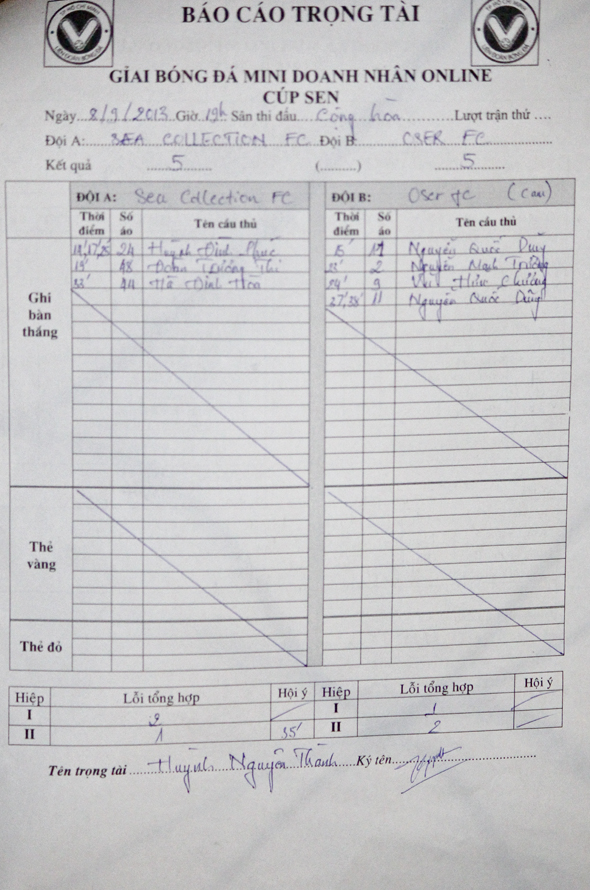 TP HỒ CHÍ MINH
LIÊN ĐOÀN BÓNG ĐÁ
BÁO CÁO TRỌNG TÀI
GIẢI BÓNG ĐÁ MINI DOANH NHÂN ONLINE
CÚP SEN
Ngày 8/9/2013 Giờ 19h Sân thi đấu Cộng hòa Lượt trận thứ ....
Đội A: SEA COLLECTION FC Đội B: CSER FC
Kết quả 5 (..........) 5
ĐỘI A: Sea Collection FC ĐỘI B: Oser fc
Thời điểm Số áo Tên cầu thủ Thời điểm Số áo Tên cầu thủ
Ghi bàn thắng
24 Huỳnh Đình Phúc 15' Nguyễn Quốc Dũng
19' 18 Đoàn Trường Thi 2 Nguyễn Mạnh Trường
33' 44 Hà Đình Hòa 9 Chương
27,38' 11 Nguyễn Quốc Dũng
Thẻ vàng
Thẻ đỏ
Hiệp Lỗi tổng hợp Hội ý Hiệp Lỗi tổng hợp Hội ý
I 2 I 1
II 1 35' II 2
Tên trọng tài Huỳnh Nguyễn Thành Ký tên